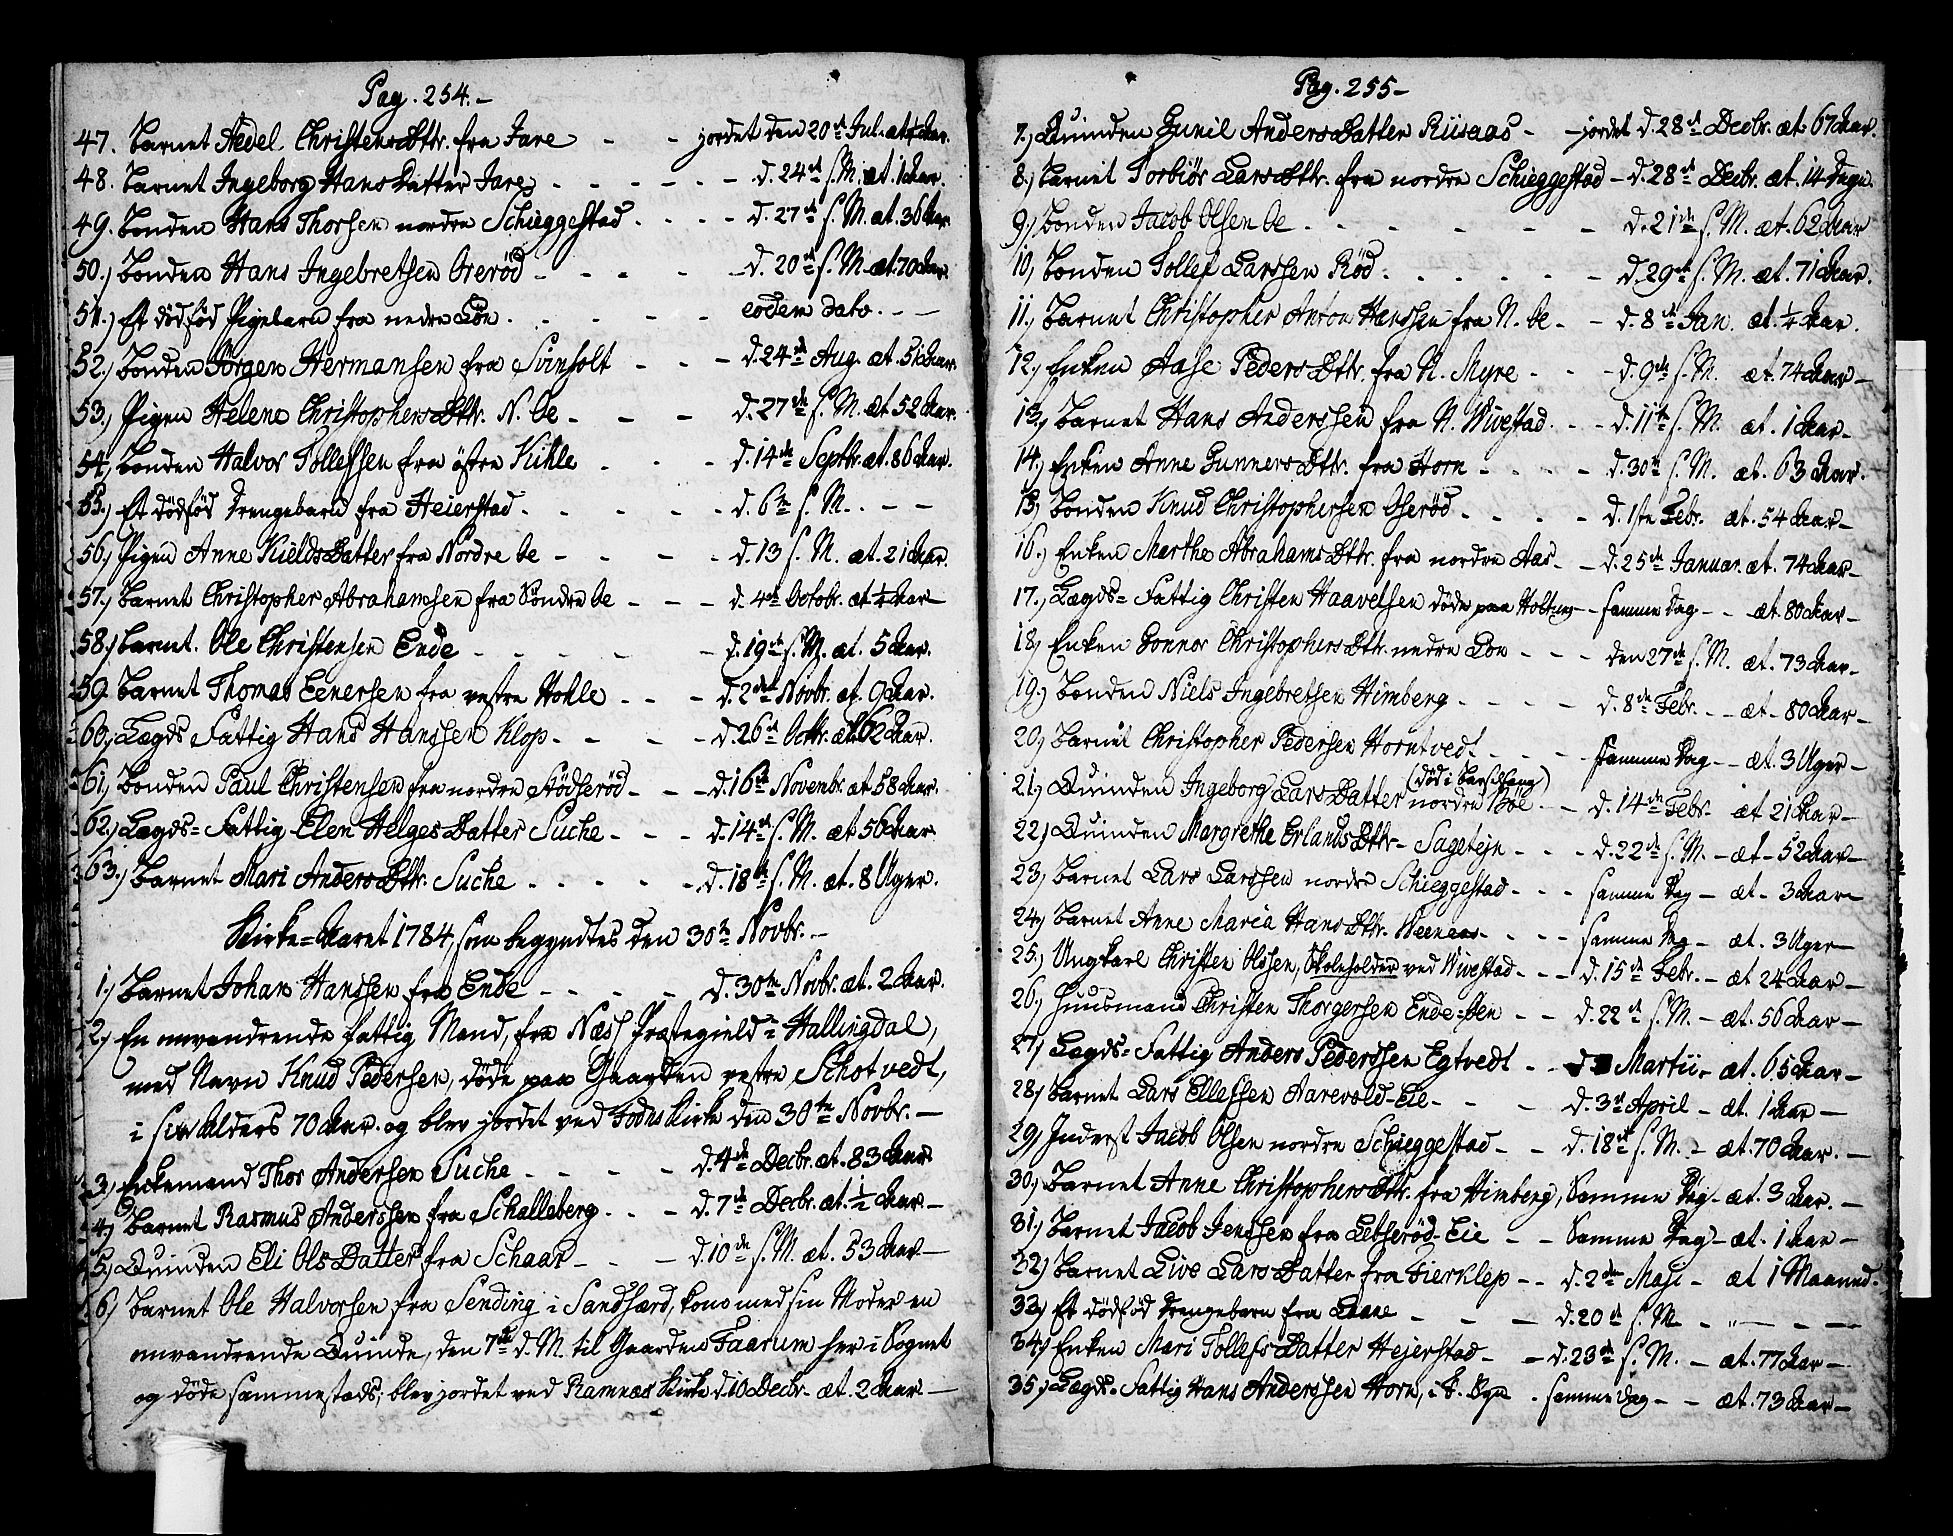 Pag. 254.
47. Barnet Aedel Christensdttr. fra Jare - - jordet den 20de Jul. æt. Aar.
48. Barnet Ingeborg Hans Datter Jare - - d. 24de s. M. æt. 1 Aar.
49. Bonden Hans Thorsen nordre Schieggestad - - d. 27de s. M. æt. 36 Aar.
50.) Bonden Hans Ingebretsen Orerød - - d. 20de s. M. æt. 70 Aar.
51.) Et dødfød Pigebarn fra nedre Løn - - eodem dato. - -
52.) Bonden Jørgen Hermansen fra Svinholt - - d. 24de Aug. æt. 51 Aar.
53.) Pigen Helene Christophersdttr. N. Oe - - d. 27de s. M. æt. 52 Aar.
54.) Bonden Halvor Tollefsen fra østre Kihle - - d. 14de Septbr. æt. 86 Aar.
55.) Et dødfød Drengebarn fra Heierstad - - d. 6te s. M. - -
56.) Pigen Anne Kields Datter fra Nordre Oe - - d. 13 s. M. æt. 21 Aar.
57.) Barnet Christopher Abrahamsen fra Søndre Oe - - d. 4de Octobr. æt. ¼ Aar -
58.) Barnet Ole Christensen Ende - - d. 19de s. M. æt. 5 Aar.
59. Barnet Thomas Eenersen fra vestre Hohle - - d. 2den Novbr. æt. 9 Aar.
60.) Lægds Fattig Hans Hanssen Klop - - d. 26de Octbr. æt. 62 Aar.
61.) Bonden Paul Christensen fra nordre Stødserød - - d. 16de Novembr. æt. 58 Aar.
62.) Lægds-Fattig Elen Helges Datter Suche - - d. 14de s. M. æt. 56 Aar.
63.) Barnet Mari Anders Dttr. Suche - - d. 18de s. M. æt. 8 Uger.
Kirke-Aaret 1784, som begyndtes den 30te Novbr. -
1.) Barnet Johan Hanssen fra Ende - - d. 30te Novbr. æt. 2 Aar.
2.) En omvandrende fattig Mand, fra Næss Præstegield i Hallingdal,
med Navn Knud Pedersen, døde paa Gaarden vestre Schotvedt,
i sin Alders 70 Aar. og blev jordet ved Fodns Kirke den 30te Novbr. -
3.) Enkemand Thor Andersen Suche - - d. 4de Decbr. æt. 83 Aar.
4.) Barnet Rasmus Anderssen fra Schalleberg - - d. 7de Decbr. æt. ½ Aar. -
5.) Quinden Eli Ols Datter fra Schaar - - d. 10de s. M. æt. 53 Aar. -
6.) Barnet Ole Halvorsen fra Sending i Sandsærd, kom med sin Moder en
omvandrende Quinde, den 7de d. M. til Gaarden Faarum her i Sognet
og døde sammestads; blev jordet ved Ramnæs Kirke d. 10 Decbr. æt. 2 Aar. -
Pag. 255 -
7.) Quinden Gunil Anders Datter Riisaas - - jordet d. 28de Decbr. æt. 67 Aar.
8.) Barnet Torbiør Lars Dttr. fra nordre Schieggestad - d. 28de Decbr. æt. 14 Dage.
9.) Bonden Jacob Olsen Oe - - d. 21de s. M. æt. 62 Aar
10.) Bonden Tollef Larssen Rød - - d. 29de s. M. æt. 71 Aar.
11.) Barnet Christopher Anton Hanssen fra N. Oe - - d. 8de Jan. æt. ¼ Aar.
12.) Enken Aase Peders Dttr. fra N. Myre - - d. 9de s. M. æt. 74 Aar -
13.) Barnet Hans Anderssen fra N. Wivestad - - d. 11te s. M. æt. 1 Aar -
14.) Enken Anne Gunners Dttr. fra Horn - - d. 30te s. M. æt. 63 Aar.
15.) Bonden Knud Christophersen Oserød - - d. 1ste Febr. æt. 54 Aar -
16.) Enken Marthe Abrahams Dttr. fra nordre Aas - - d. 25de Januar. æt. 74 Aar -
17.) Lægds-Fattig Christen Haavelsen døde paa Holtung - samme Dag - - æt. 80 Aar -
18.) Enken Gonnor Christophers Dttr. nedre Løn - - den 27de s. M. æt. 73 Aar -
19.) Bonden Niels Ingebretsen Himberg - - d. 8de Febr. - - æt. 80 Aar -
20.) Barnet Christopher Pedersen Horntvedt - - samme Dag - æt. 3 Uger -
21.) Quinden Ingeborg Lars Datter nordre Bøe (død i Barselsæng) - - d. 14de Febr. - æt. 21 Aar -
22.) Quinden Margrethe Erlands Dttr. Sagetejn - - d. 22de s. M. - æt. 52 Aar -
23.) Barnet Lars Larssen nordre Schieggestad - - samme Dag - æt. 3 Aar -
24.) Barnet Anne Maria Hans Dttr. Weeneas - - samme Dag - æt. 3 Uger -
25.) Ungkarl Christen Olssen, Skoleholder ved Wivestad - - d. 15de Febr. - æt. 24 Aar -
26.) Huusmand Christen Thorgersen Ende-Øen - - d. 22de s. M. - æt. 56 Aar -
27.) Lægds-Fattig Anders Pederssen Egtvedt - - d. Martii - æt. 65 Aar -
28.) Barnet Lars Ellefsen Aarevold-Eie - - d. 3de April - æt. 1 Aar -
29.) Inderst Jacob Olsen nordre Schieggestad - - d. 18de s. M. - æt. 70 Aar. -
30.) Barnet Anne Christophers Dttr. fra Himberg, Samme Dag - æt. 3 Aar. -
31.) Barnet Jacob Jenssen fra Lebserød-Eie - - Samme Dag - æt. 1 Aar -
32.) Barnet Live Lars Datter fra Fierklep - - d. 2den Maji - æt. 1 Maaned.
33.) Et dødfød Drengebarn fra Laane - - d. 20de s. M. - " - -
34.) Enken Mari Tollefs Datter Hejerstad - - d. 23de s. M. - æt. 77 Aar -
35.) Lægds-Fattig Hans Anderssen Horn, i F. Sogn - samme Dag - - æt. 73 Aar -